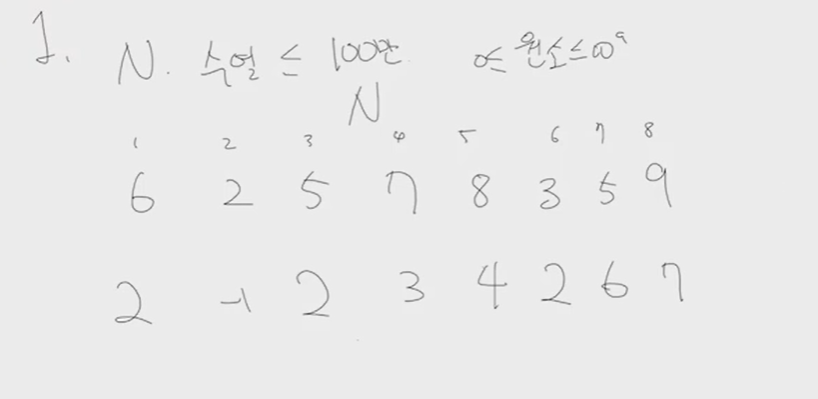 1. N. 수열 ≤ 100만 0≤ 원소≤10⁹
N
1 2 3 4 5 6 7 8
6 2 5 7 8 3 5 9
2 -1 2 3 4 2 6 7